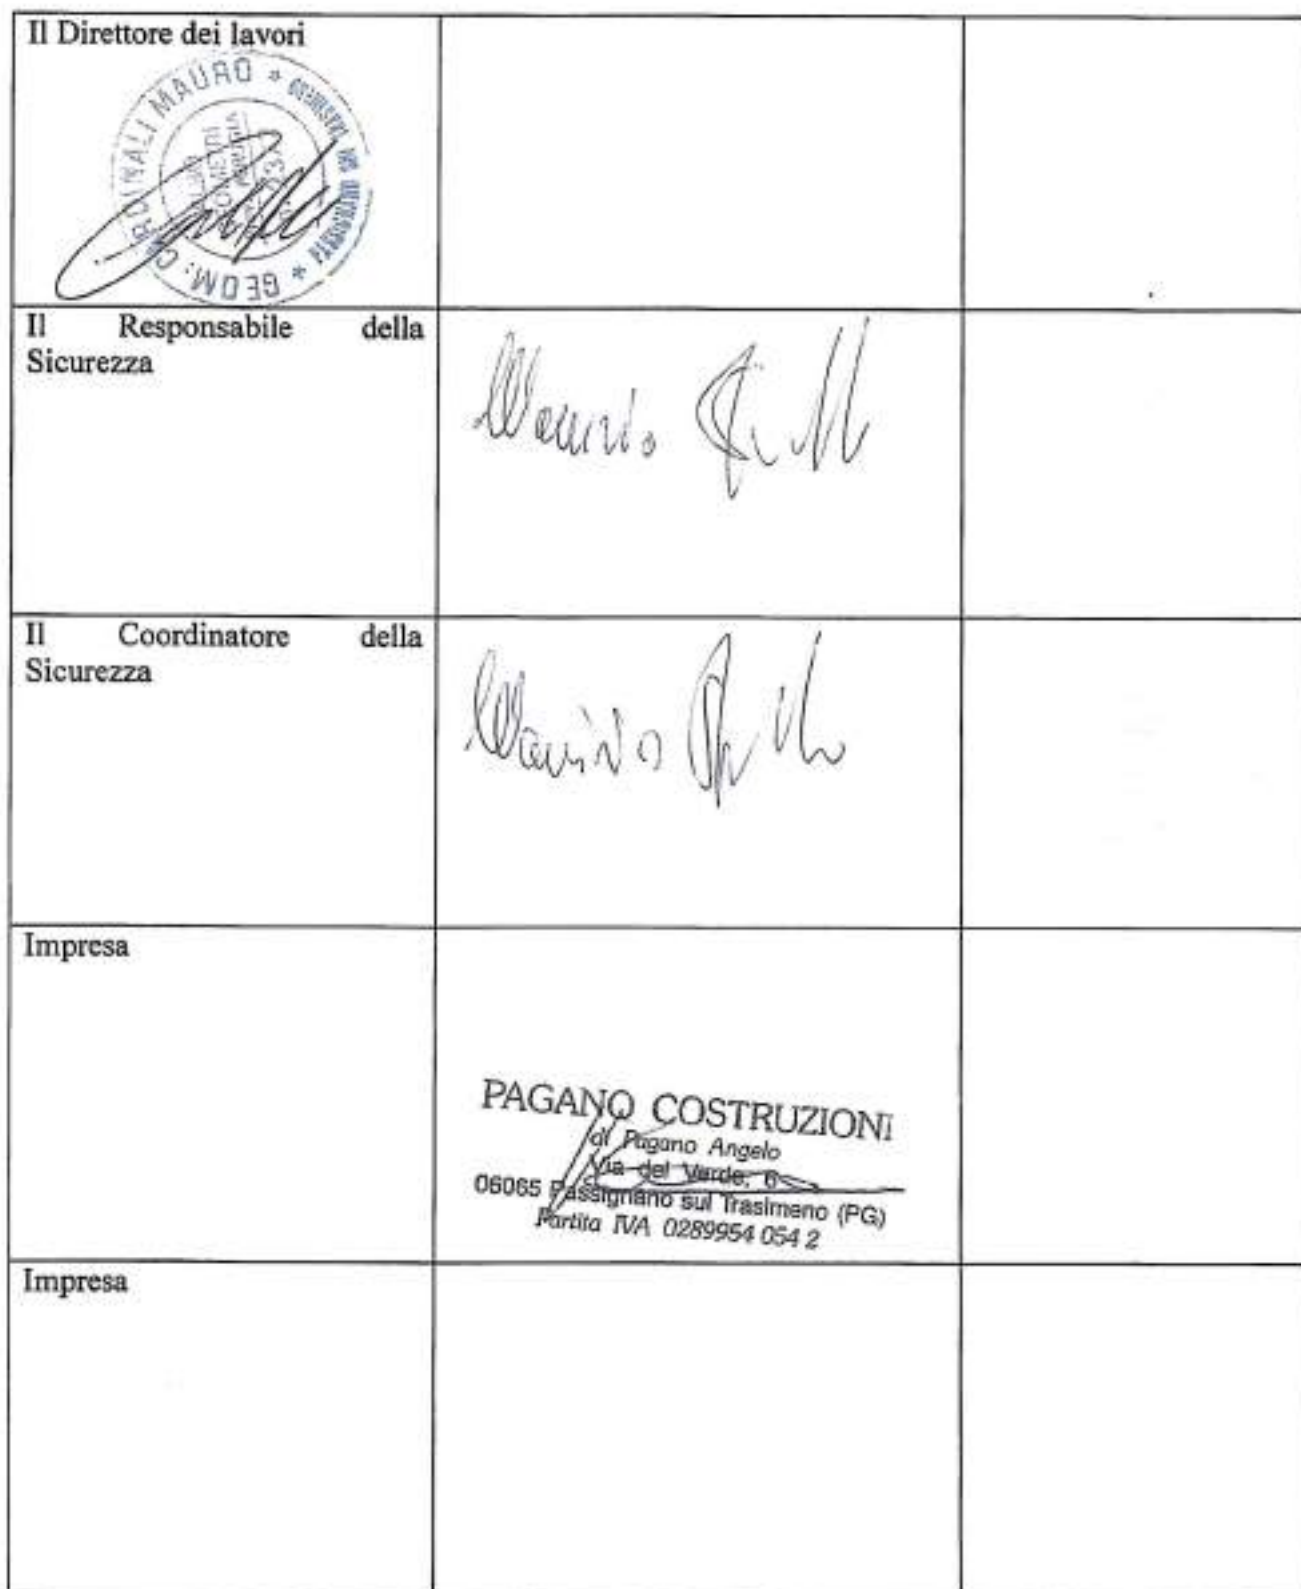 Il Direttore dei lavori
GEOM. CARDINALI MAURO * PASSIGNANO SUL TRASIMENO *
Il Responsabile della
Sicurezza
Il Coordinatore della
Sicurezza
Impresa
PAGANO COSTRUZIONI
di Pagano Angelo
Via del Verde, 6
06065 Passignano sul Trasimeno (PG)
Partita IVA 0289954 054 2
Impresa